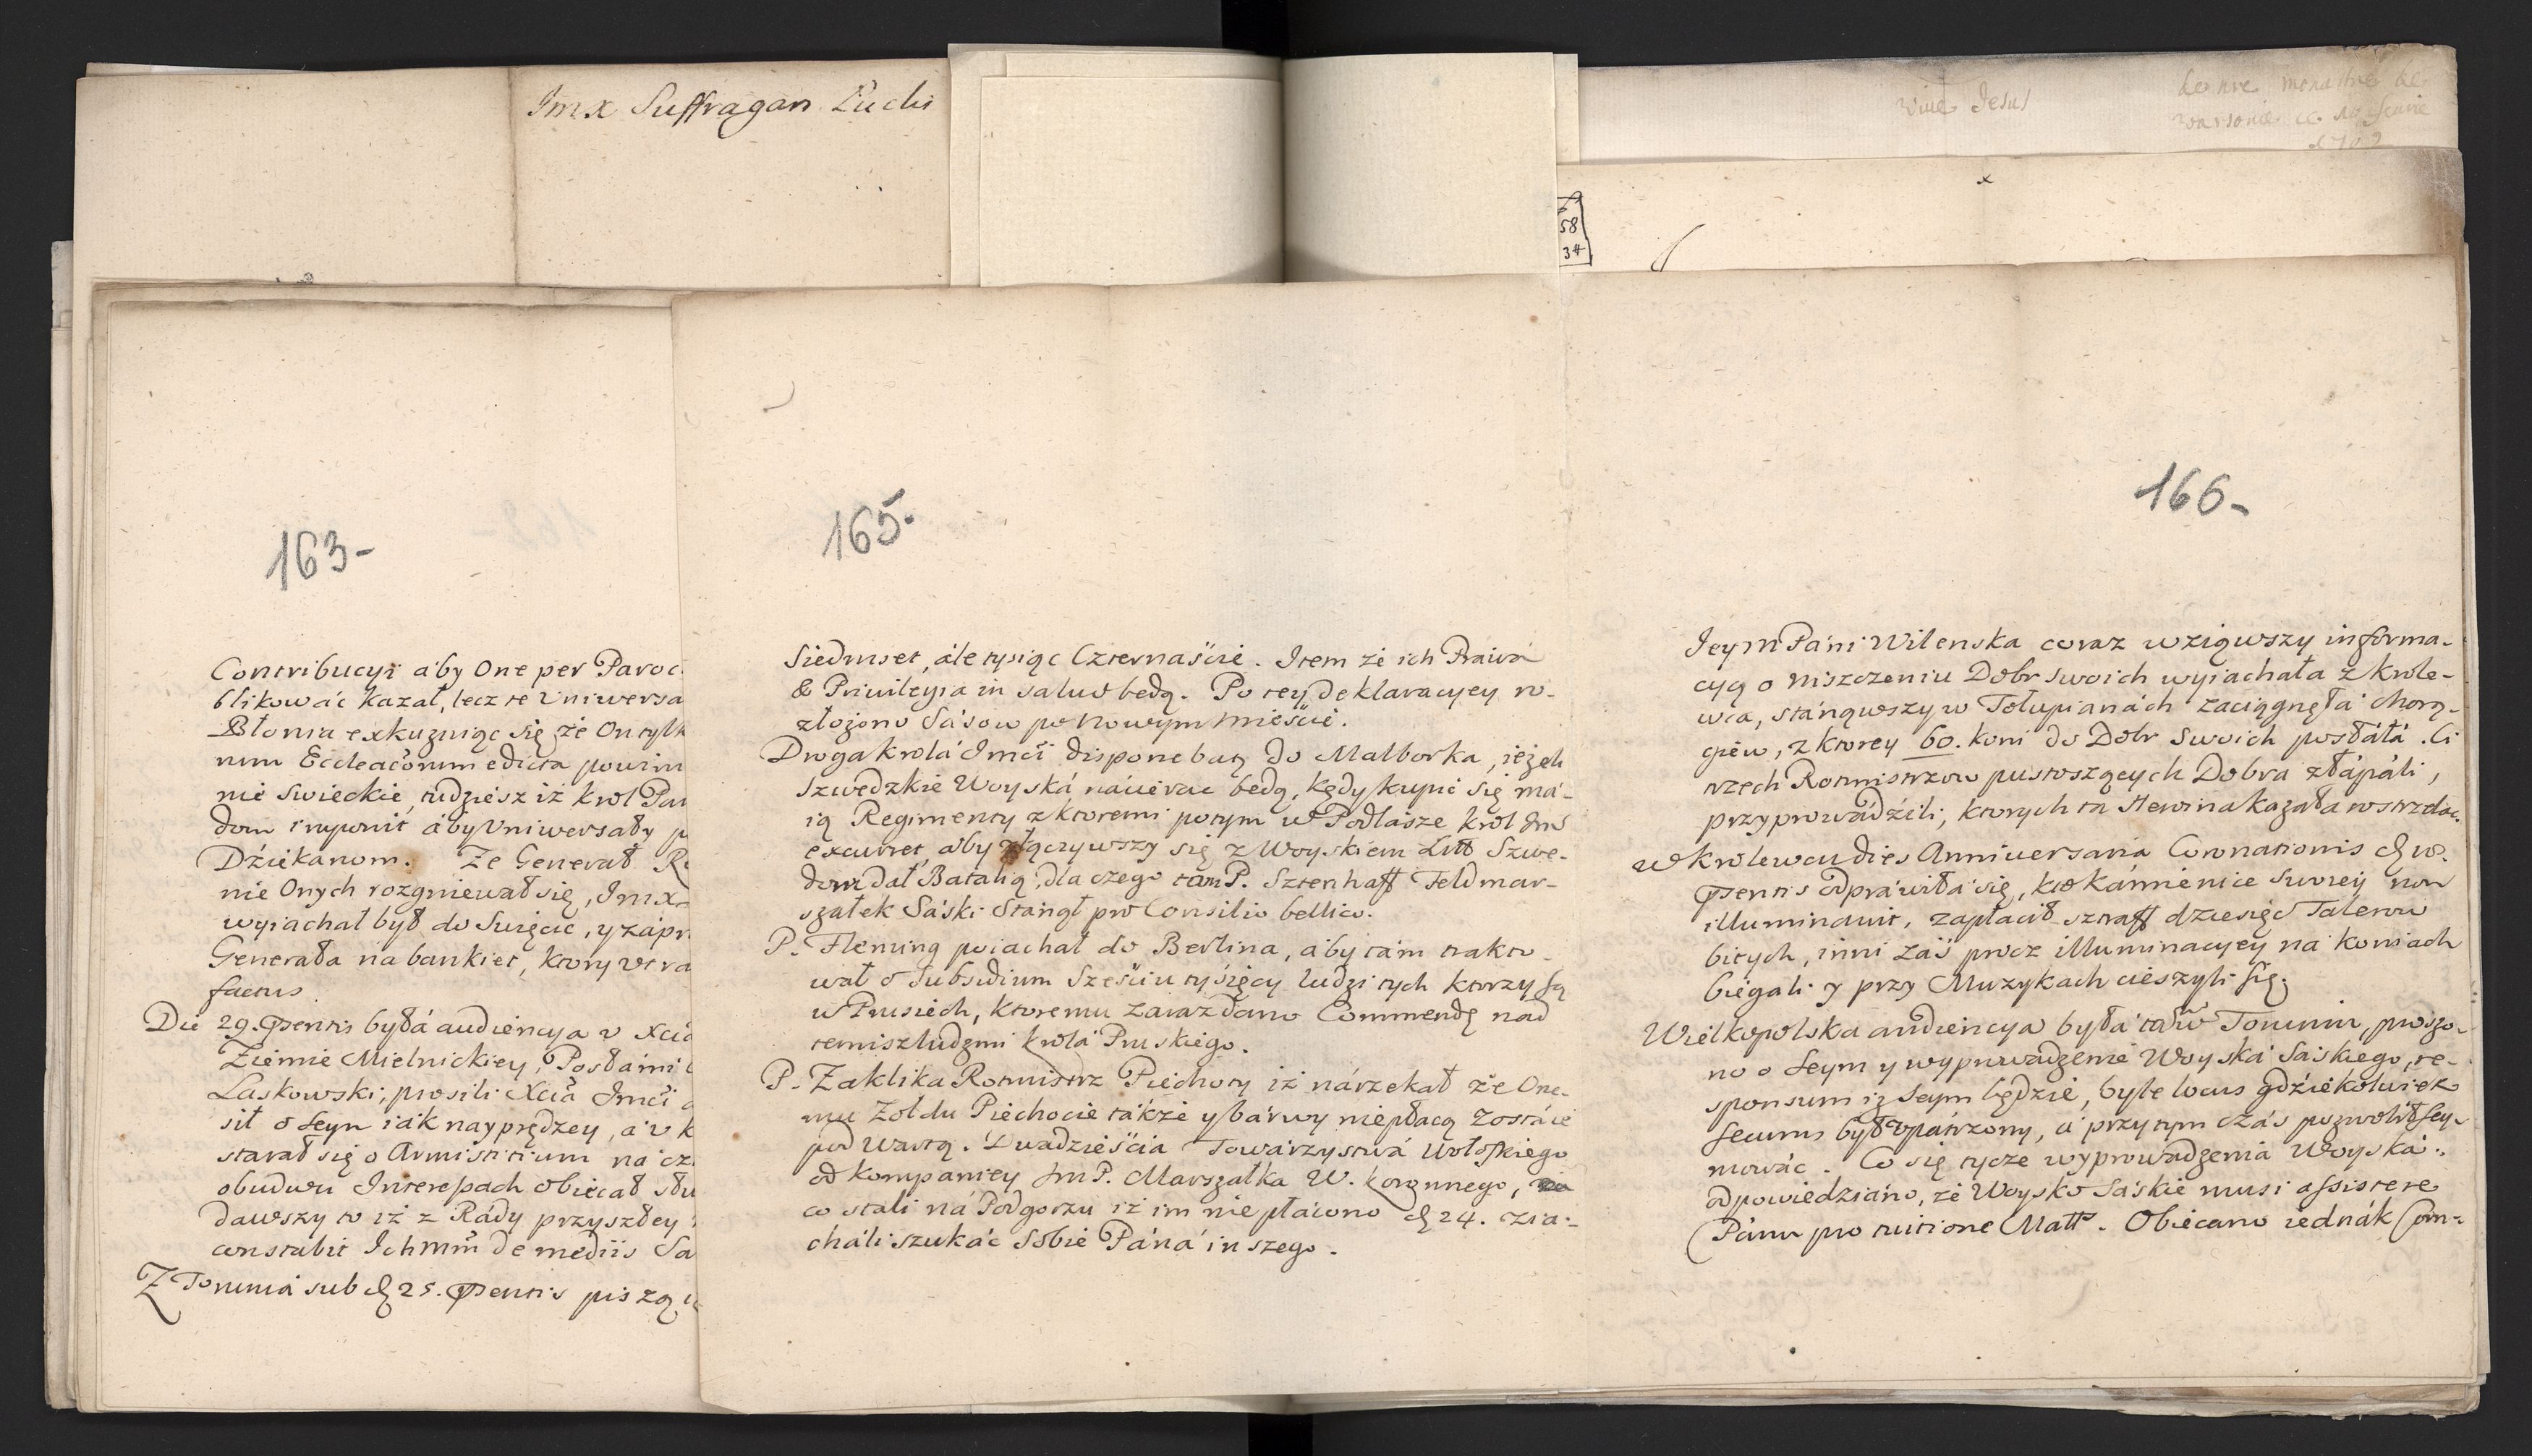 Imx Suffragan Łucki
Vive Jesus
58
34
163-
Contribucyi aby One per Paroc
blikować kazał, lecz te Uniwersa
Błonia exkuzuiąc się że On tylk
num Eccleaẽorum edicta powin
nie swieckie, tudziesz iż krol Pan
dom iniunxit aby Uniwersały p
Dźiekanom. Ze Generał R
nie Onych rozgniewał się, Imx
wyiachał był do Swięcic, y zapr
Generała na bankiet, ktory
factus
Die 29. praesentis była audiencya u Xcia
Ziemie Mielnickiey, Posłami
Laskowski; prosili Xcia Jmci
sił o Seym iak nayprędzey, a u k
starał się o Armistitium na cz
obudwu Interepach obiecał słu
dawszy to iż z Rady przyszłey
constabit Ichmm de mediis Sa
Z Torunia sub d 25. praesentis piszą
165.
Siedmset, ale tysiąc Czternaście. Item że ich Prawa
& Privilegia in salvo będą. Po tey deklaracyey ro-
złożono Sasow po Nowym Mieście.
Droga krola Jmci disponebatur do Malborka, ieżeli
Szwedzkie Woyska nacierac będą, kędy kupić się ma-
ią Regimenty z ktoremi potym w Podlasze krol Jmć
excurret, aby złączywszy się z Woyskiem Litt Szwe-
dom dał Batalią, dla czego tam P. Sztenhaff Feldmar-
szałek Saski Stanął pro Consilio bellico.
P. Fleming poiachał do Berlina, aby tam trakto-
wał o Subsidium Sześciu tysięcy ludzi tych ktorzy są
w Prusiech, ktoremu zaraz dano Commendę nad
temisz ludzmi krola Pruskiego.
P. Zaklika Rotmistrz Piechoty iż narzekał że One-
mu Zołdu Piechocie także y barwy niepłacą zostaie
pod Wartą. Dwadzieścia Towarzystwa Wołoskiego
od kompaniey Jm P. Marszałka W. koronnego,
co stali na Podgorzu iż im nie płacono d 24. zia-
chali szukać sobie Pana inszego.
166-
Jeym Pani Wilenska coraz wziąwszy informa-
cyą o niszczeniu Dobr swoich wyiachała z krole-
wca, stanąwszy w Tołupianach zaciągnęła chorą-
giew, z ktorey 60. koni do Dobr swoich posłała. Ci
trzech Rotmistrzow pustoszących Dobra złapali,
przyprowadźili, ktorych ta Heroina kazała rostrzelac.
w krolewcu dies Anniversaria Coronationis d 18.
praesentis odprawiła się, kto kamienice swoiey non
illuminavit, zapłacił sztraff dziesięć Talerow
bitych, inni zaś procz illuminacyey na koniach
biegali y przy Muzykach cieszyli się.
Wielkopolska audiencya była taḿ w Toruniu, proszo-
no o Seym y wyprowadzenie Woyska Saskiego, re-
sponsum iż Seym będzie, byle locus gdziekolwiek
securus był opatrzony, a przytym czas pozwolił Sey-
mować. Co się tycze wyprowadzenia Woyska.
odpowiedziano, że Woysko Saskie musi assistere
Panu pro tuitione Matt. Obiecano iednak Com-